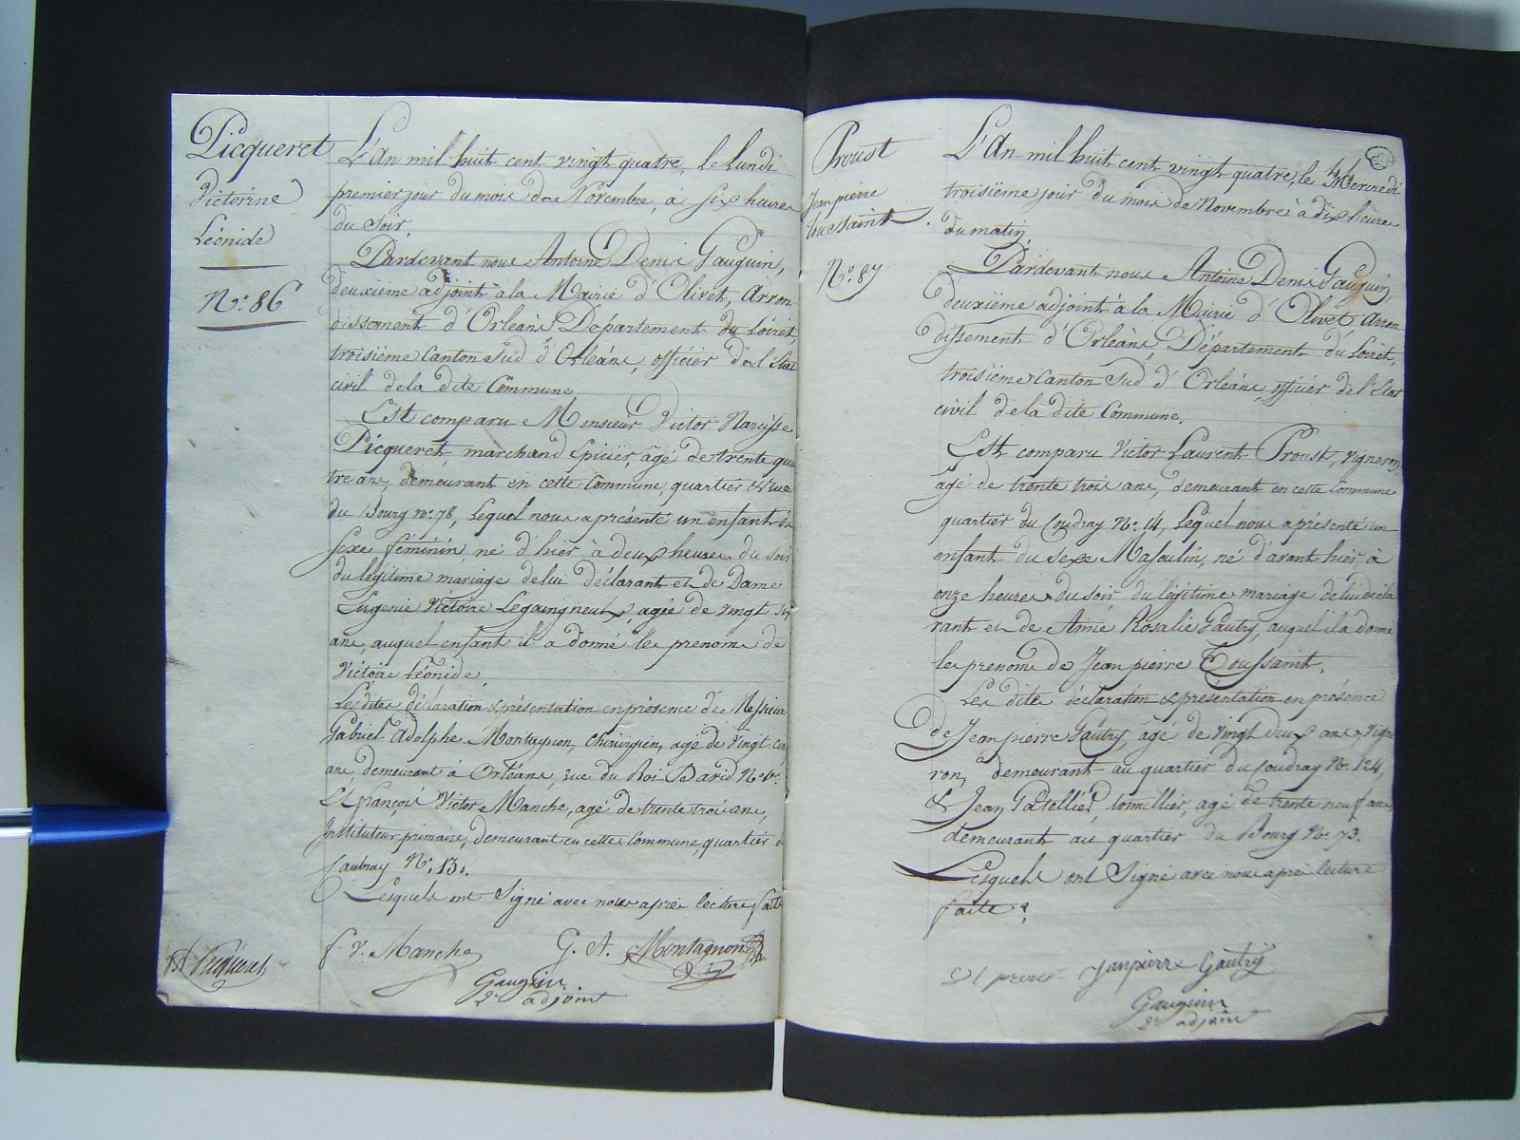 Picqueret
Victorine
Léonide
N.o 86
L'An mil huit cent vingt quatre, le Lundi
premier jour du mois de Novembre, à six heures
du Soir.
Pardevant nous Antoine Denis Gauguin,
deuxième adjoint à la Mairie d'Olivet, Arron
dissement d'Orléans Département du Loiret,
troisième Canton Sud d'Orléans, officier de l'état
civil de la dite Commune
Est comparu Monsieur Victor Narcisse
Picqueret, marchand Epicier, âgé de trente qua
tre ans, demeurant en cette Commune, quartier
du Bourg no. 78, Lequel nous a présenté un enfant du
sexe féminin, né d'hier à deux heures du soir
du légitime mariage de lui déclarant et de Dame
Eugenie Victoire agée de vingt
ans, auquel enfant il a donné les prenoms de
Victoire Léonide.
Les dites déclaration & présentation en présence des Messieurs
Gabriel Adolphe Montagnon, Chirurgien, agé de vingt cinq
ans, demeurant à Orléans, rue du Roi David No.
Et François Victor Manche, agé de trente trois ans,
Instituteur primaire, demeurant en cette Commune, quartier
No. 13.
Lesquels ont Signé avec nous après lecture faite
Picqueret
f. v. Manche
G. A. Montagnon
Gauguin
2e adjoint
Proust
Jean pierre
toussaint.
N.o 87
L'An mil huit cent vingt quatre, le Mercredi
troisième jour du mois de Novembre à dix heures
du matin,
Pardevant nous Antoine Denis Gauguin,
deuxième adjoint à la Mairie d'Olivet Arron
dissement d'Orléans, Département du Loiret,
troisième Canton Sud d'Orléans, officier de l'état
civil de la dite Commune.
Est comparu Victor Laurent Proust, Vigneron,
âgé de trente trois ans, demeurant en cette Commune
quartier du Coudray No. 14, Lequel nous a présenté un
enfant du sexe Masculin, né d'avant hier, à
onze heures du soir du légitime mariage de lui décla
rant et de Aimé Rosalie Gautry, auquel il a donné
les prenoms de Jean pierre Toussaint.
Les dites déclaration & présentation en présence
de Jean pierre Gautry âgé de vingt deux ans, Vigne
ron, demeurant au quartier du Coudray No. 124,
& Jean tonnellier, agé de trente neuf ans
demeurant au quartier du Bourg No. 73.
Lesquels ont Signé avec nous après lecture
faite.
Janpierre Gautry
Gauguin
2e adjoint